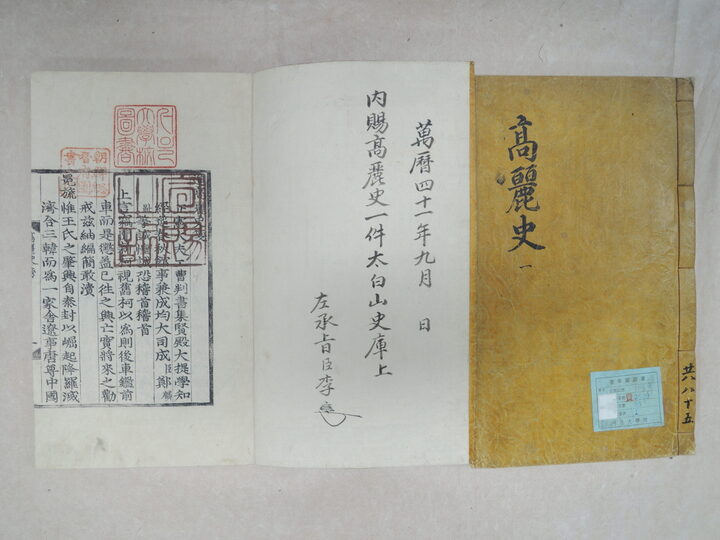 高麗史
一
八十五
萬曆四十一年九月 日
內賜高麗史一件太白山史庫上
左承旨臣李
大夫工曹判書集賢殿大提學知
經 秋 事兼成均大司成臣鄭麟
誠 恐稽首稽首
上言 視舊柯以爲則後車鑑前
車而是懲蓋已往之興亡實將來之勸
戒玆紬編簡敢瀆
冕旒惟王氏之肇興自泰封以崛起降羅滅
濟合三韓而爲一家舍遼事唐尊中國
大學校
圖書